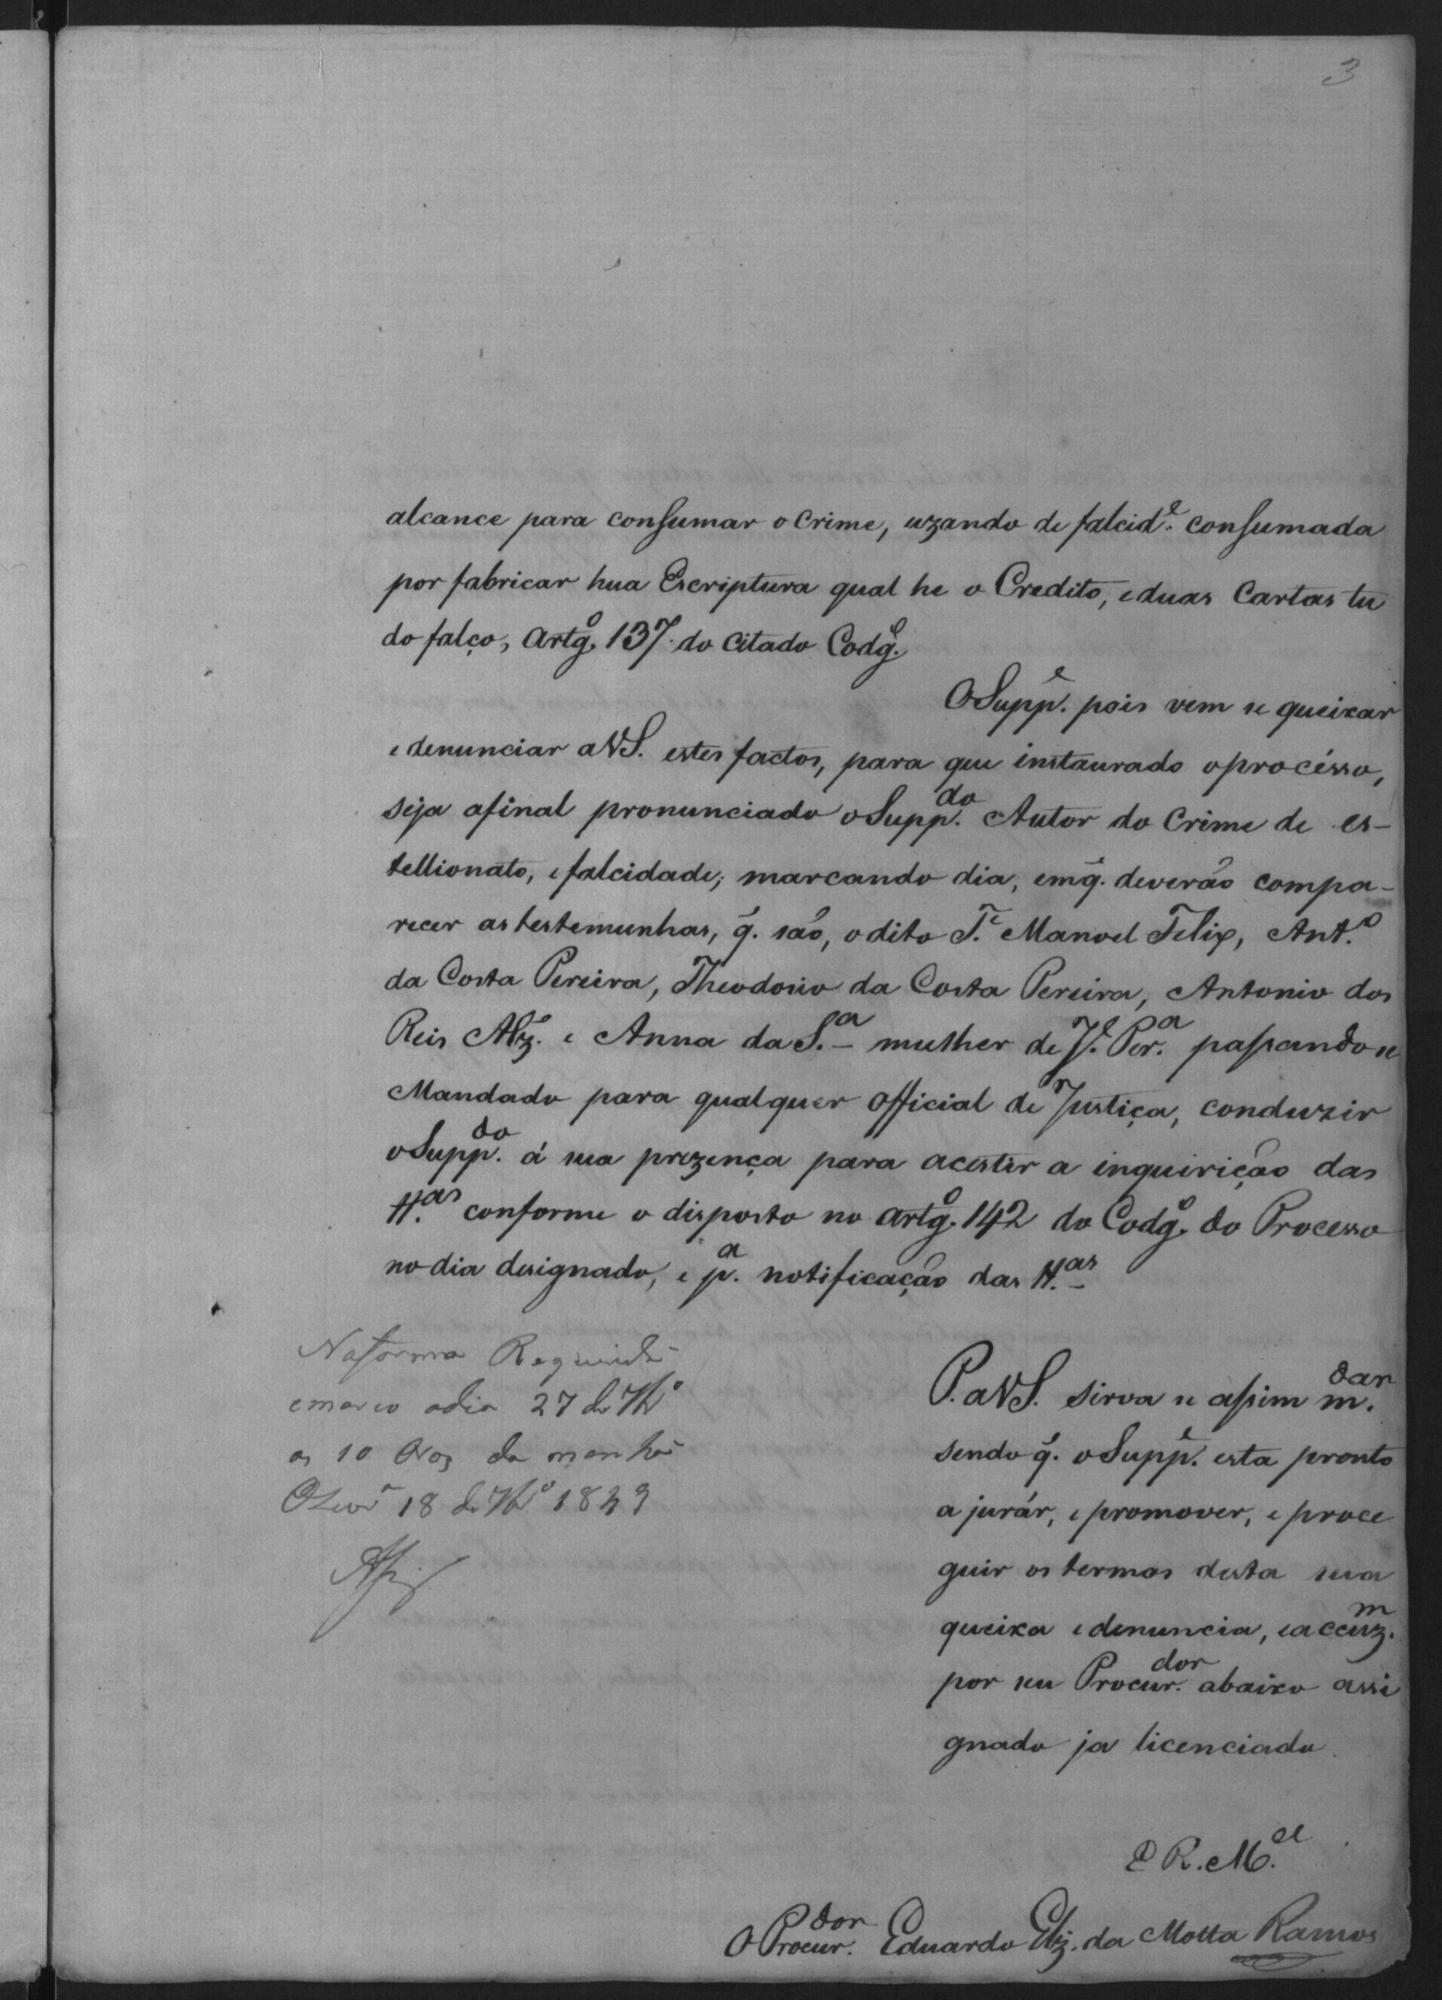 3
alcance para consumar o crime, uzando de falcid.e consumada
por fabricar hua Escriptura qual he o Credito, e duas Cartas tu
do falço, Artg.o 137. do Citado Codg.o
O Supp.e pois vem se queixar
e denunciar a V S. estes factos, para que instaurado o procésso,
seja afinal pronunciado o Supp.do Autor do Crime de es-
tellionato, e falcidade; marcando dia, em q̃. deverão compa-
recer as testemunhas, q̃. são, o dito T.e Manoel Felix, Ant.o
da Costa Pereira, Theodosio da Costa Pereira, Antonio dos
Reis Alz.̃ e Anna da S.a mulher de J.e Per.a passando se
Mandado para qualquer Official de Justiça, conduzir
o Supp.do á sua prezença para acestir a inquirição das
tt.as conforme o disposto no artg.o 142 do Codg.o do Processo
no dia designado, e p.a notificação das tt.as
Na forma Requerida
e marco o dia 27 de 7br.o
as 10 oras da manhã
18 de 7br.o 1849
P. a V S. sirva se assim m.dar
sendo q̃. o Supp.e esta pronto
a jurár, e promover, e proce
guir os termos desta sua
queixa e denuncia, e a ccuz.m
por seu Procur.dor abaixo assi
gnado ja licenciado.
E R. M.ce
O Procur.dor Eduardo Elz. da Motta Ramos